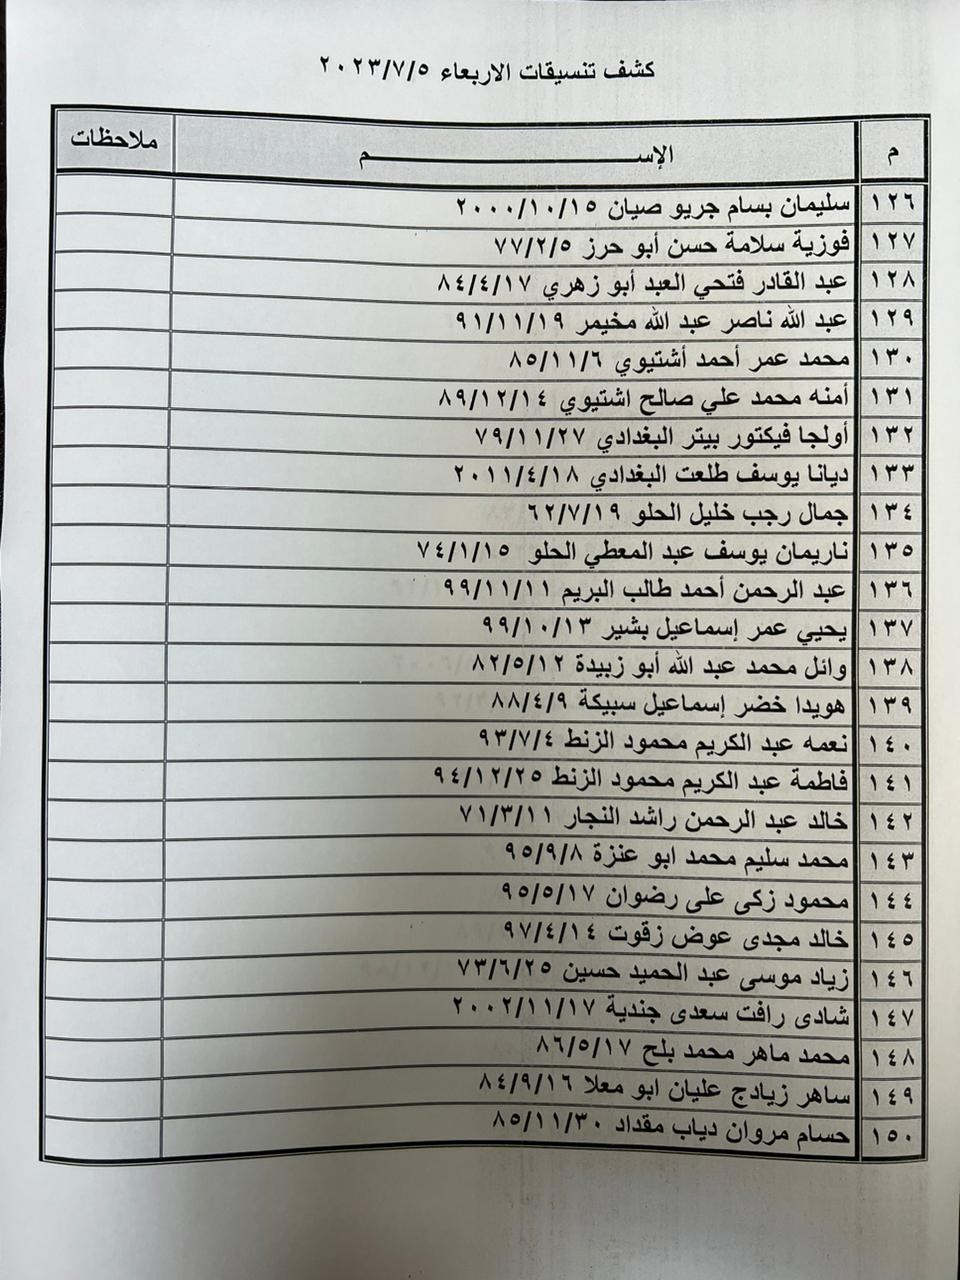 كشف تنسيقات الاربعاء ٢٠٢٣/٧/٥
م الإســـــم ملاحظات
١٢٦ سليمان بسام جريو صيان ٢٠٠٠/١٠/١٥
١٢٧ فوزية سلامة حسن أبو حرز ٧٧/٢/٥
١٢٨ عبد القادر فتحي العبد أبو زهري ٨٤/٤/١٧
١٢٩ عبد الله ناصر عبد الله مخيمر ٩١/١١/١٩
١٣٠ محمد عمر أحمد أشتيوي ٨٥/١١/٦
١٣١ أمنه محمد علي صالح اشتيوي ٨٩/١٢/١٤
١٣٢ أولجا فيكتور بيتر البغدادي ٧٩/١١/٢٧
١٣٣ ديانا يوسف طلعت البغدادي ٢٠١١/٤/١٨
١٣٤ جمال رجب خليل الحلو ٦٢/٧/١٩
١٣٥ ناريمان يوسف عبد المعطي الحلو ٧٤/١/١٥
١٣٦ عبد الرحمن أحمد طالب البريم ٩٩/١١/١١
١٣٧ يحيي عمر إسماعيل بشير ٩٩/١٠/١٣
١٣٨ وائل محمد عبد الله أبو زبيدة ٨٢/٥/١٢
١٣٩ هويدا خضر إسماعيل سبيكة ٨٨/٤/٩
١٤٠ نعمه عبد الكريم محمود الزنط ٩٣/٧/٤
١٤١ فاطمة عبد الكريم محمود الزنط ٩٤/١٢/٢٥
١٤٢ خالد عبد الرحمن راشد النجار ٧١/٣/١١
١٤٣ محمد سليم محمد ابو عنزة ٩٥/٩/٨
١٤٤ محمود زكى على رضوان ٩٥/٥/١٧
١٤٥ خالد مجدى عوض زقوت ٩٧/٤/١٤
١٤٦ زياد موسى عبد الحميد حسين ٧٣/٦/٢٥
١٤٧ شادى رافت سعدى جندية ٢٠٠٢/١١/١٧
١٤٨ محمد ماهر محمد بلح ٨٦/٥/١٧
١٤٩ ساهر زيادج عليان ابو معلا ٨٤/٩/١٦
١٥٠ حسام مروان دياب مقداد ٨٥/١١/٣٠